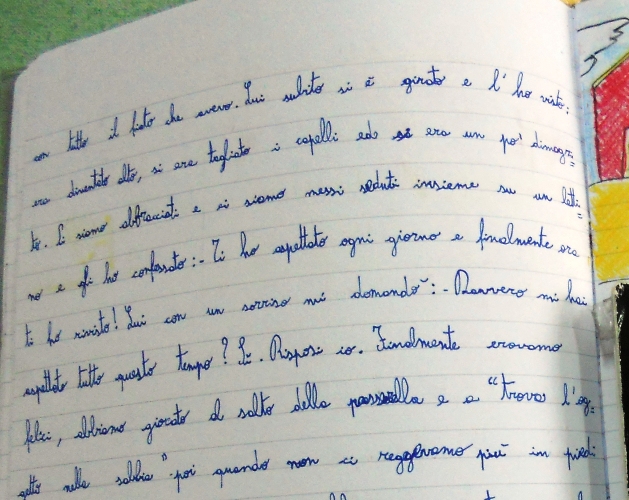 con tutto il fiato che avevo. Lui subito si è girato e l'ho visto:
era diventato alto, si era tagliato i capelli ed si era un po' dimagri=
to. Ci siamo abbracciati e ci siamo messi seduti insieme su un letti=
no e gli ho confessato:- Ti ho aspettato ogni giorno e finalmente ora
ti ho rivisto! Lui con un sorriso mi domandò:- Davvero mi hai
aspettato tutto questo tempo? Sì. Risposi io. Finalmente eravamo
felici, abbiamo giocato al salto della passerella e a "trova l'og=
getto nella sabbia" poi quando non ci reggevamo più in piedi